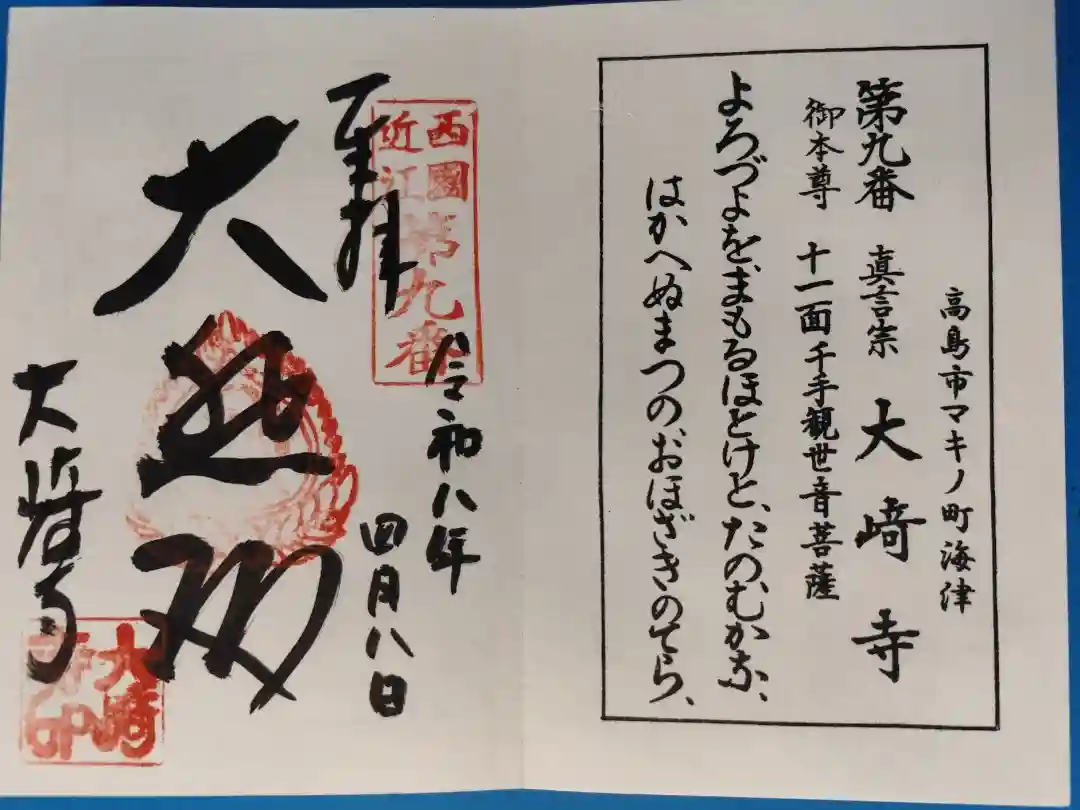 高島市マキノ町海津
第九番 真言宗 大﨑寺
御本尊 十一面千手観世音菩薩
よろづよを、まもるほとけと、たのむかな、
はかへぬまつの、おほざきのてら、
西國
近江
第九番
奉拝
令和八年
四月八日
大悲閣
大﨑寺
大﨑
寺印